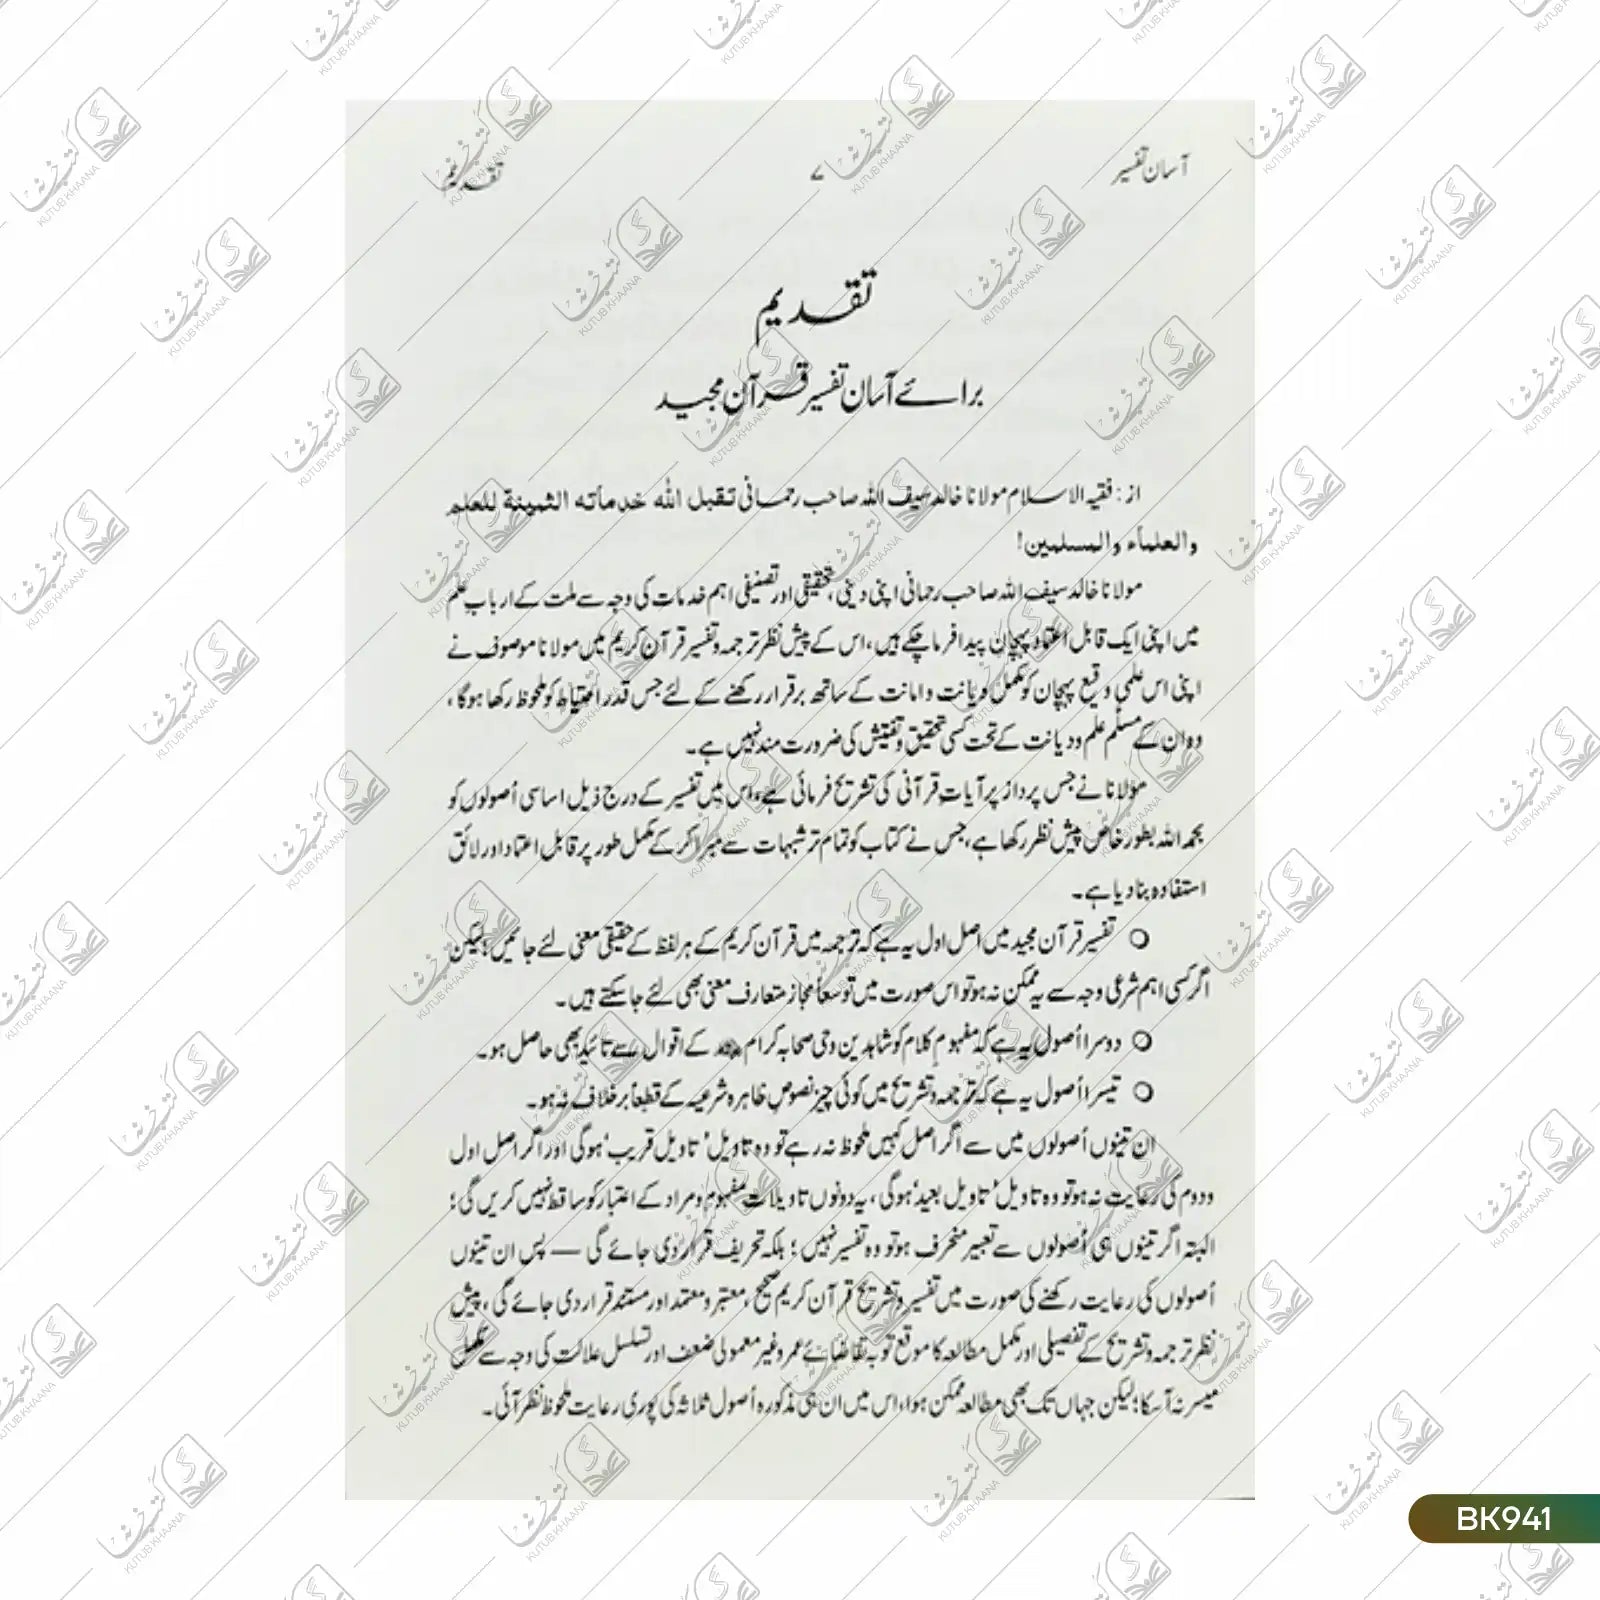 آسان تفسیر ۷ تقدیم
تقدیم
برائے آسان تفسیر قرآن مجید
از: فقیہ الاسلام مولانا خالد سیف اللہ صاحب رحمانی تقبل الله خدماته الثمينة للعلم
والعلماء والمسلمين!
مولانا خالد سیف اللہ صاحب رحمانی اپنی دینی، تحقیقی اور تصنیفی اہم خدمات کی وجہ سے ملت کے ارباب علم
میں اپنی ایک قابل اعتماد پہچان پیدا فرماچکے ہیں، اس کے پیش نظر ترجمہ و تفسیر قرآن کریم میں مولانا موصوف نے
اپنی اس علمی وقیع پہچان کو مکمل دیانت و امانت کے ساتھ برقرار رکھنے کے لئے جس قدر احتیاط کو ملحوظ رکھا ہوگا،
وہ ان کے مسلّم علم و دیانت کے تحت کسی تحقیق و تفتیش کی ضرورت مند نہیں ہے۔
مولانا نے جس پرداز پر آیات قرآنی کی تشریح فرمائی ہے، اس میں تفسیر کے درج ذیل اساسی اُصولوں کو
بحمد اللہ بطور خاص پیش نظر رکھا ہے، جس نے کتاب کو تمام تر شبہات سے مبرا کر کے مکمل طور پر قابل اعتماد اور لائق
استفادہ بنا دیا ہے۔
○ تفسیر قرآن مجید میں اصل اول یہ ہے کہ ترجمہ میں قرآن کریم کے ہر لفظ کے حقیقی معنی لئے جائیں؛ لیکن
اگر کسی اہم شرعی وجہ سے یہ ممکن نہ ہو تو اس صورت میں توسعاً مجاز متعارف معنی بھی لئے جاسکتے ہیں۔
○ دوسرا اُصول یہ ہے کہ مفہوم کلام کو شاہدین وحی صحابہ کرام ﷢ کے اقوال سے تائید بھی حاصل ہو۔
○ تیسرا اُصول یہ ہے کہ ترجمہ و تشریح میں کوئی چیز نصوص ظاہرہ شرعیہ کے قطعاً برخلاف نہ ہو۔
ان تینوں اُصولوں میں سے اگر اصل کہیں ملحوظ نہ رہے تو وہ تاویل 'تاویل قریب' ہوگی اور اگر اصل اول
و دوم کی رعایت نہ ہو تو وہ تاویل 'تاویل بعید' ہوگی، یہ دونوں تاویلات مفہوم و مراد کے اعتبار کو ساقط نہیں کریں گی؛
البتہ اگر تینوں ہی اُصولوں سے تعبیر منحرف ہو تو وہ تفسیر نہیں؛ بلکہ تحریف قرار دی جائے گی — پس ان تینوں
اُصولوں کی رعایت رکھنے کی صورت میں تفسیر و تشریح قرآن کریم صحیح، معتبر و معتمد اور مستند قرار دی جائے گی، پیش
نظر ترجمہ و تشریح کے تفصیلی اور مکمل مطالعہ کا موقع تو بہ تقاضائے عمر و غیر معمولی ضعف اور تسلسل علالت کی وجہ سے مکمل
میسر نہ آسکا؛ لیکن جہاں تک بھی مطالعہ ممکن ہوا، اس میں ان ہی مذکورہ اُصول ثلاثہ کی پوری رعایت ملحوظ نظر آئی۔
BK941
KUTUB KHAANA